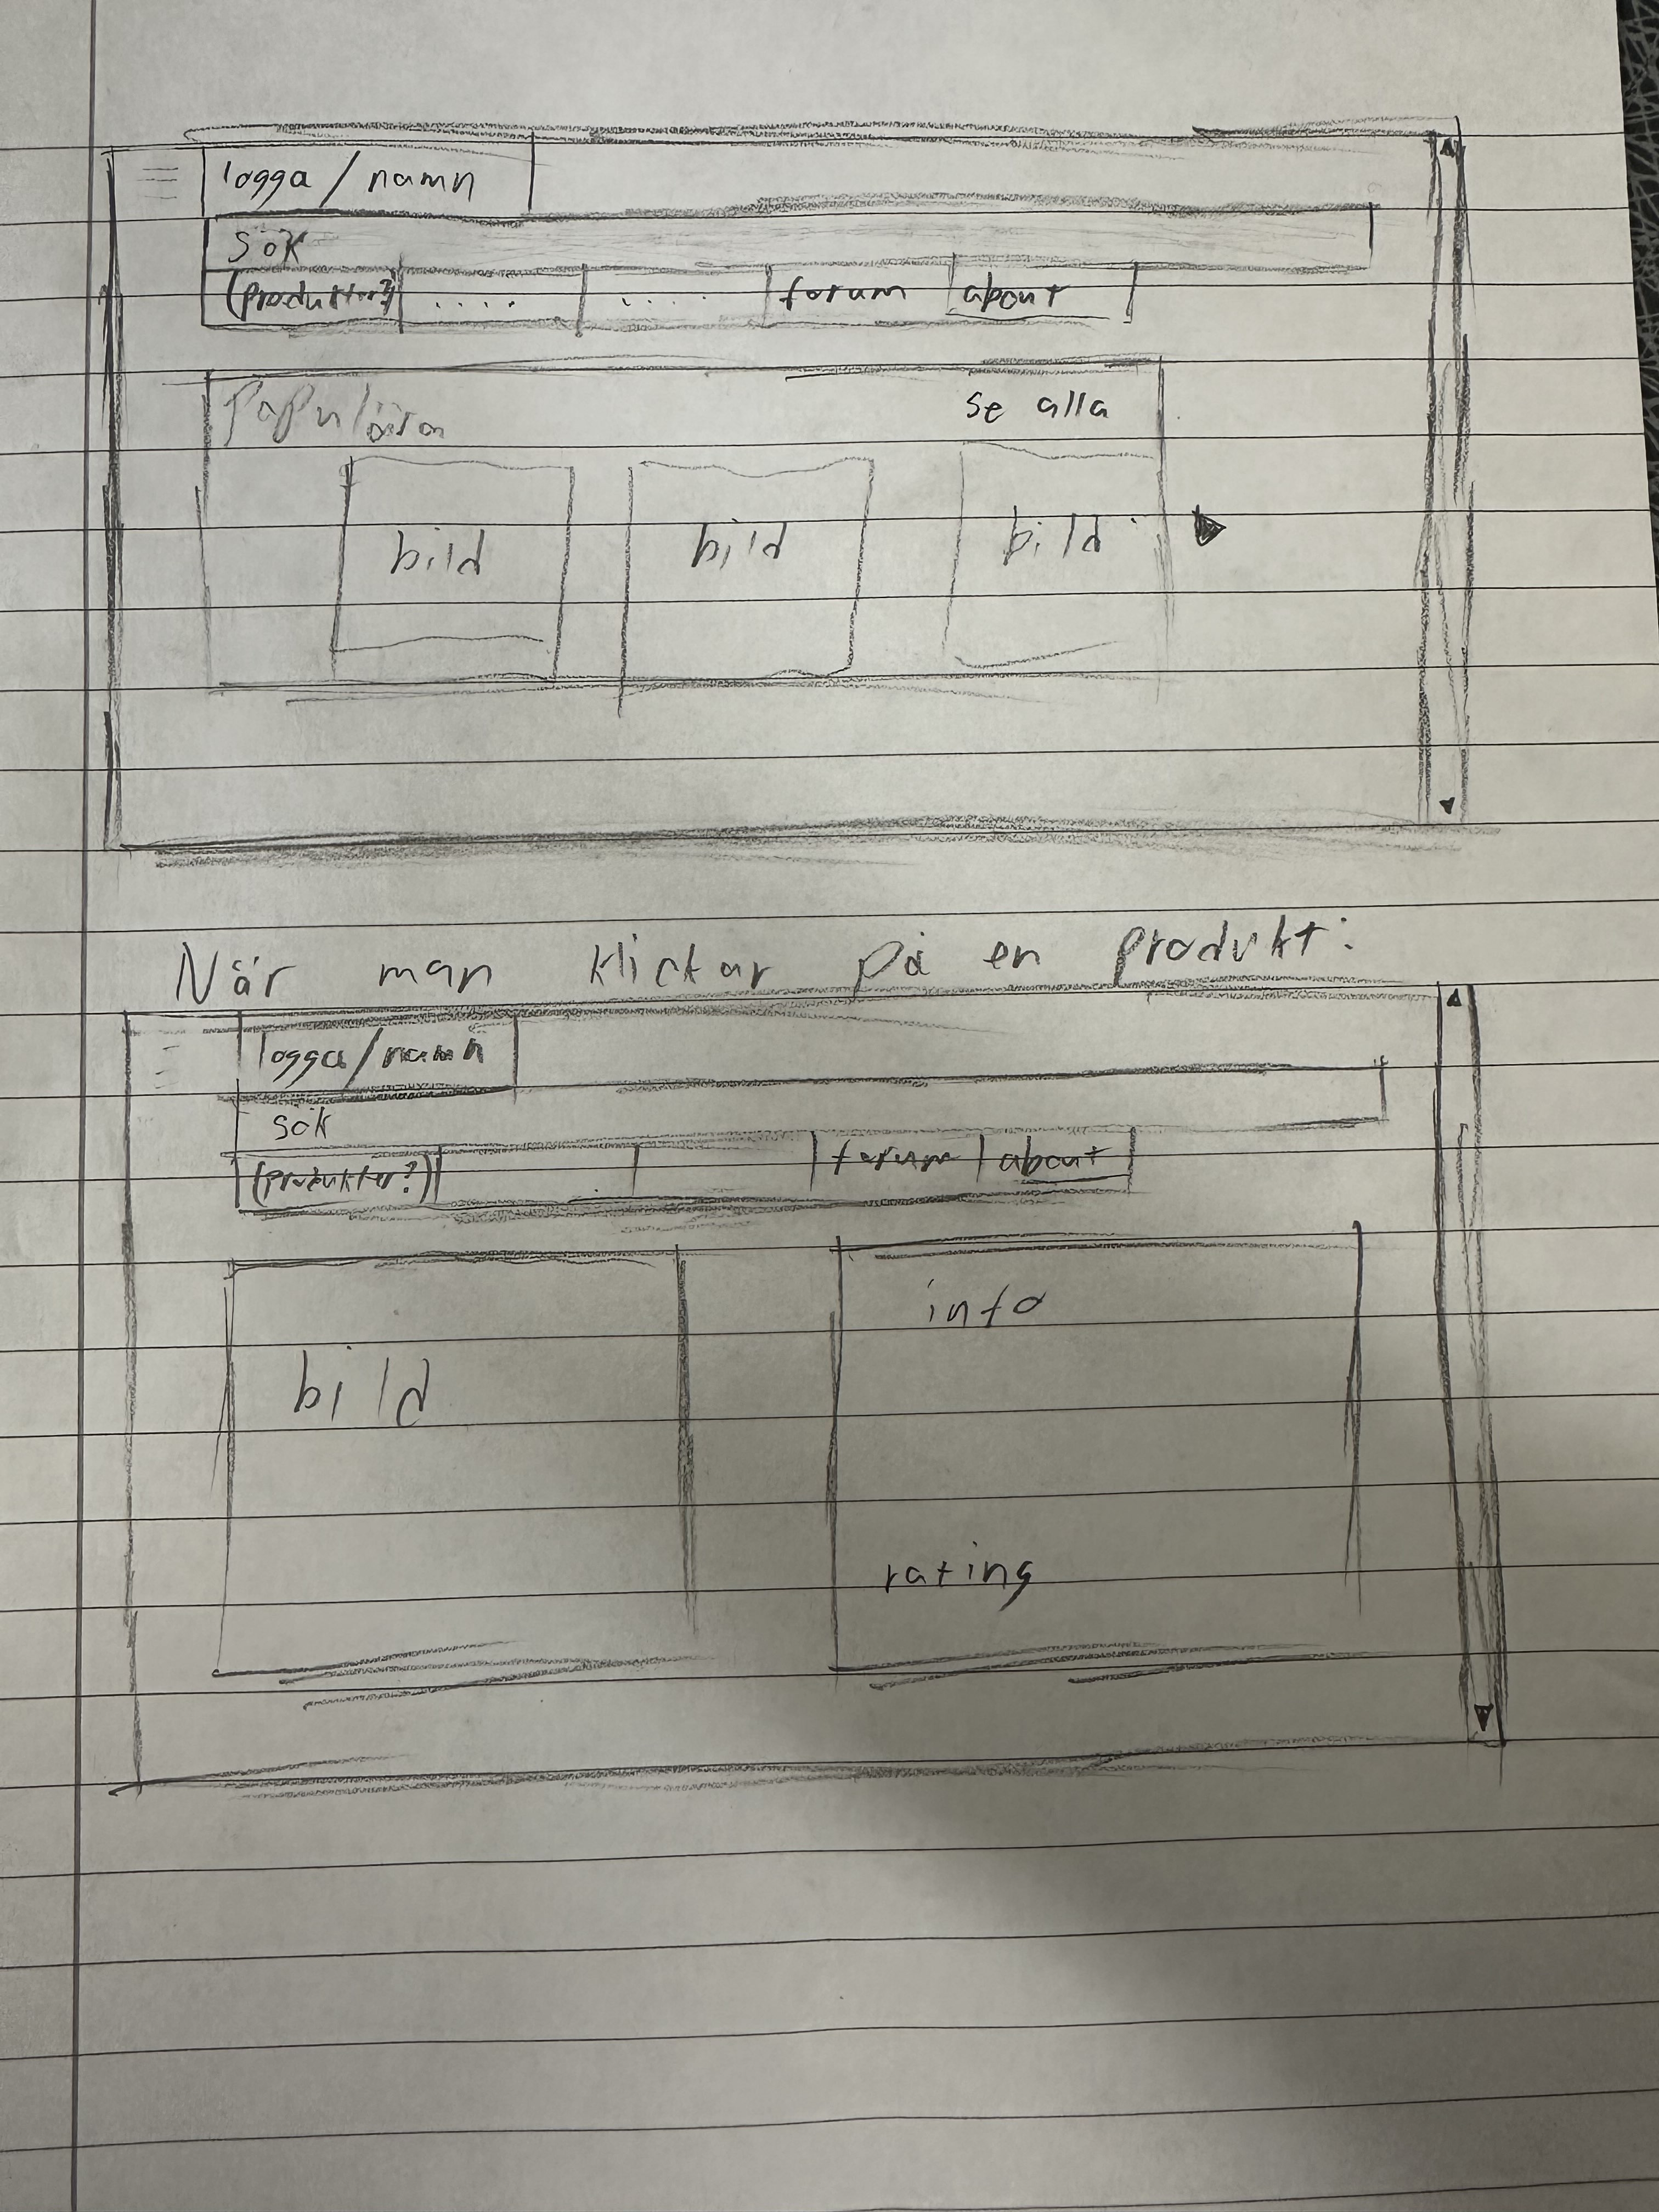 logga / namn
sök
(produkter?) ..... ..... forum about
Populära se alla
bild bild bild
När man klickar på en produkt:
logga/namn
sök
(produkter?) forum about
info
bild
rating